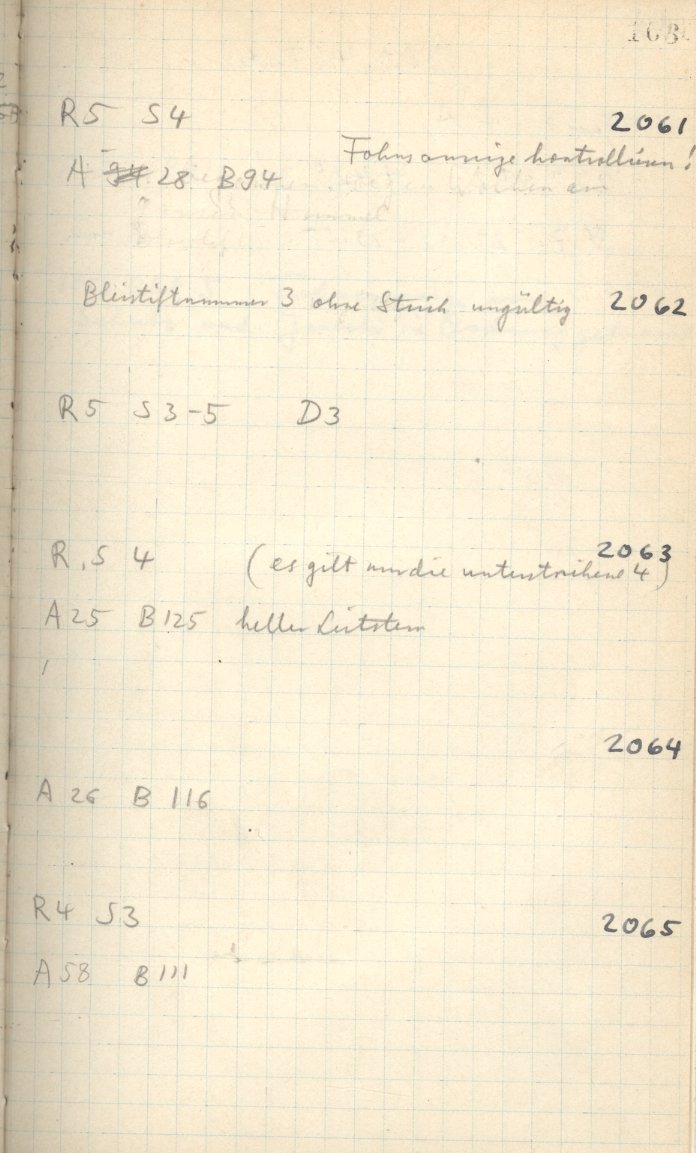 163
R5 S4 2061
kontrollieren!
A 28 B94
Bleistiftnummer 3 ohne Strich ungültig 2062
R5 S3-5 D3
2063
R, S 4 (es gilt nur die unterstrichene 4)
A25 B125 heller Leitstern
2064
A 26 B 116
R4 S3 2065
A58 B111